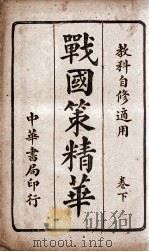 教科自修適用
卷下
戰國策精華
中華書局印行
mtoou.info